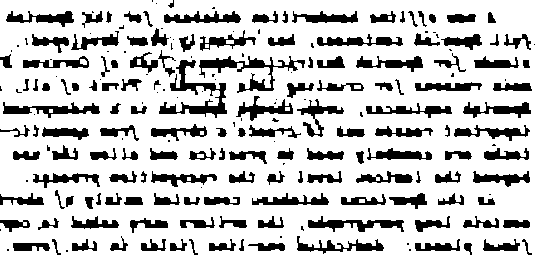 A new offline handwritten database for the Spanish
full Spanish sentences, has recently been developed:
stands for Spanish Restricted-domain Task of Cursive
main reasons for creating this corpus. First of all,
Spanish sentences, even though Spanish is a widespread
important reason was to create a corpus from semantic-
tasks are commonly used in practice and allow the use
beyond the lexicon level in the recognition process.
As the Spartacus database consisted mainly of short
contain long paragraphs, the writers were asked to cop
fixed places: dedicated one-line fields in the forms.